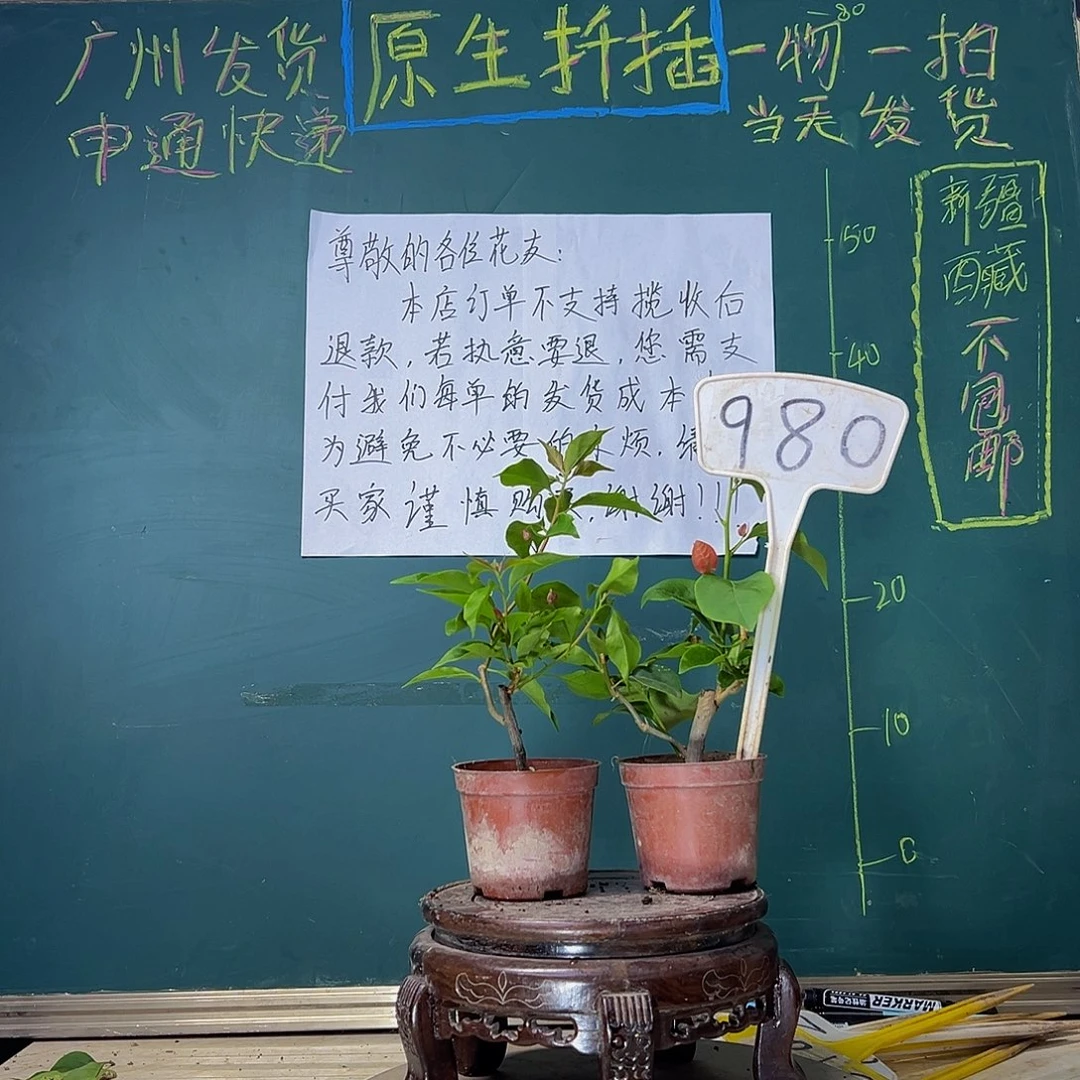 广州发货
申通快递
原生扦插
一物一拍
当天发货
尊敬的各位花友:
本店订单不支持揽收后
退款,若执意要退,您需支
付我们每单的发货成本
为避免不必要的 烦.
买家谨慎购 ,谢谢!!!
980
新疆
西藏
不
包
邮
50
40
20
10
0
MARKER